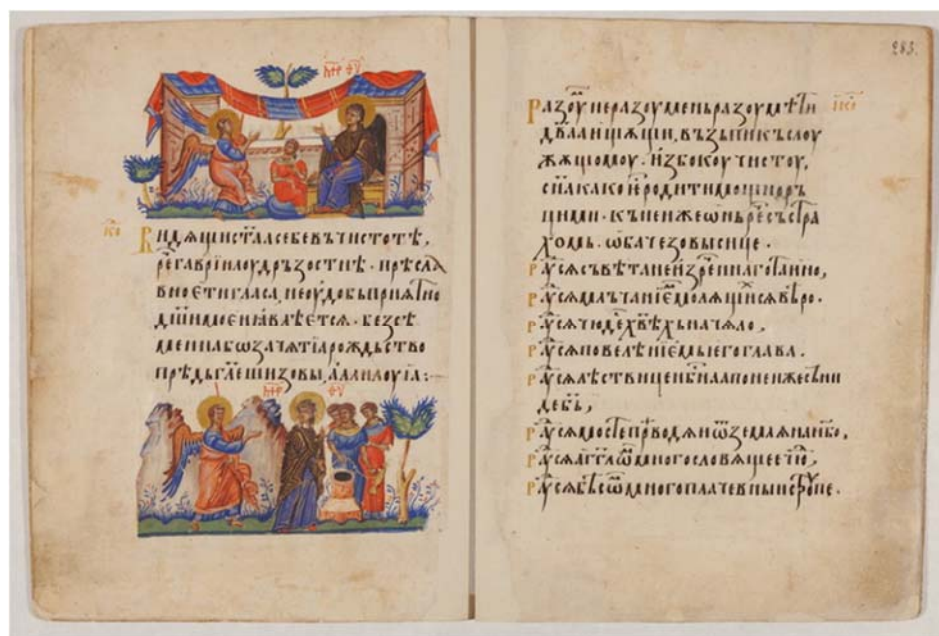 м҃р ѳ҃у
ко
Видѧщи ст҃аа себе въ чистотѣ,
реⷱ҇ гаврїилоу дръзостнѣ · прѣсла
вное ти гласа, неоудобь прїѧтно
дш҃и моеи ꙗвлѣетсѧ · без сѣ
меннаа бѡ зачѧтїа рождьство
прѣдъгл҃еши зовы, алилоуїа :~
м҃р ѳ҃у
283.
ікѡ
Разоуⷨ неразоумень разоумѣти
дв҃аа ищѧщи, възъпи къ слоу
жѧщюмоу · из бокоу чистоу,
сн҃а како іе҆ родити мощно рь
ци ми · къ неи же ѡнь реⷱ҇ съ стра
хомь · ѡбаче зовы сице ·
Раⷣуисѧ съвѣта неизреннаго таино,
Раⷣуисѧ млъчанїемь молѧщїисѧ вѣро ·
Раⷣуисѧ чюдесь хв҃ѣхь начѧло,
Раⷣуисѧ повелѣнїемь его глава ·
Раⷣуисѧ лѣствице нбⷭ҇наа по неиже съни
де бъ҃,
Раⷣуисѧ мосте прѣводѧи ѿ землѧ на нб҃о,
Раⷣуисѧ агг҃лѡⷨ многословѧщее чюⷣ,
Раⷣуисѧ бѣсѡⷨ многоплачевныи струпе ·